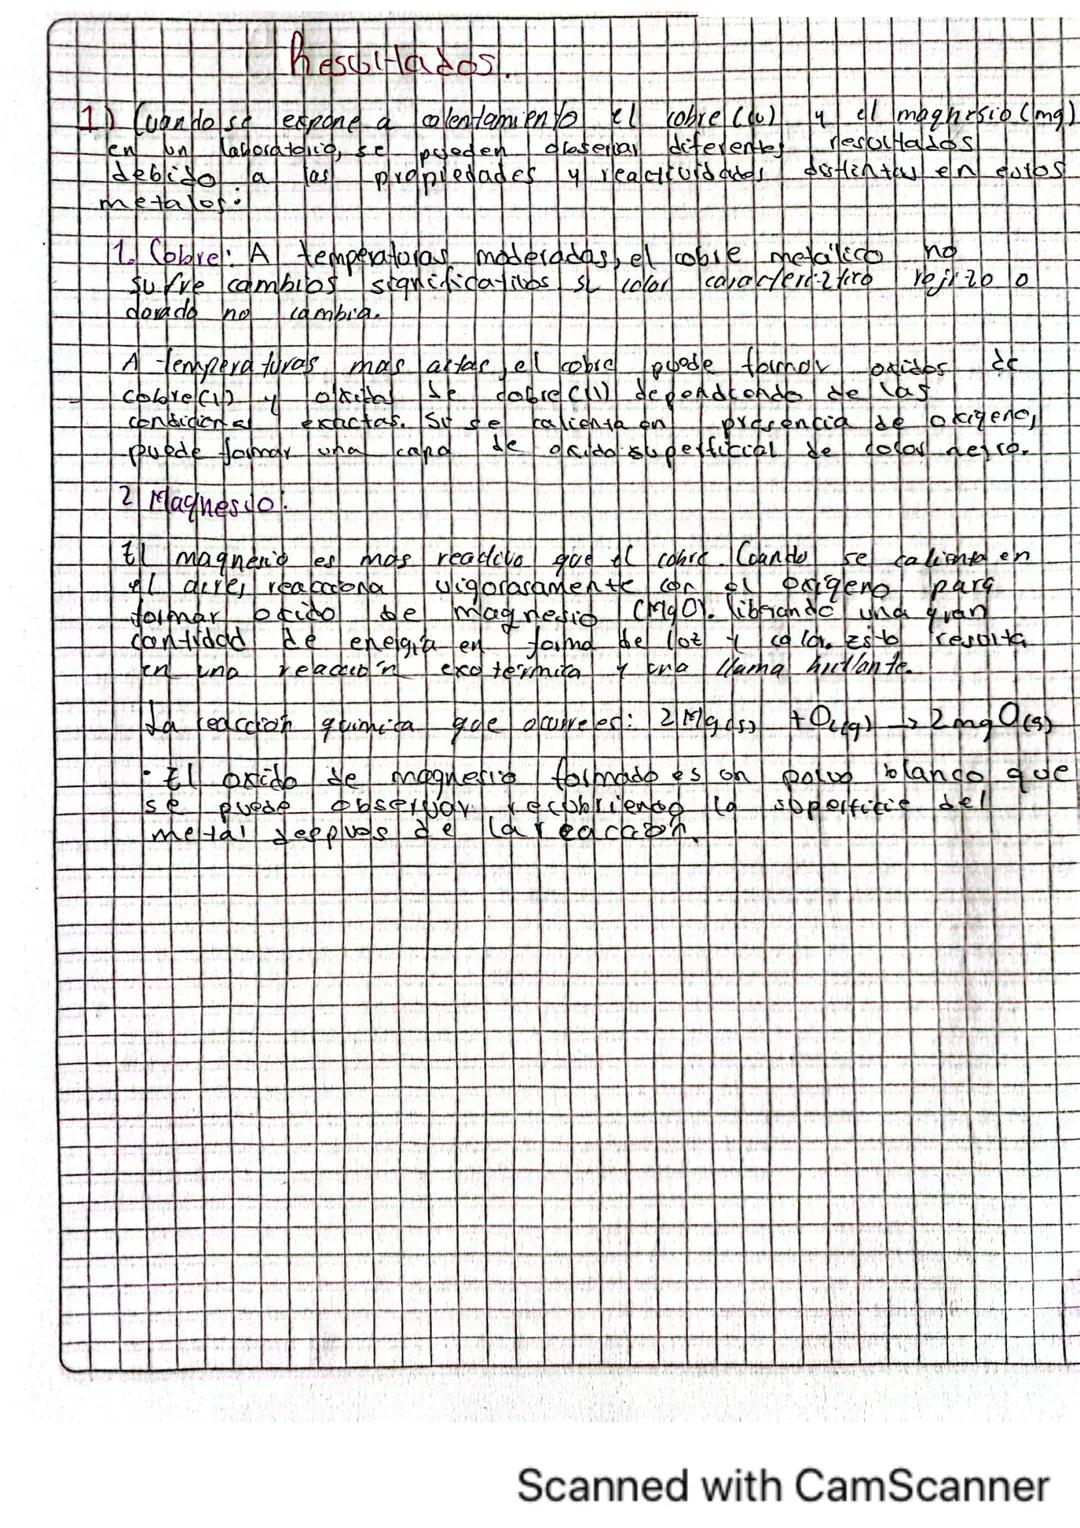 Resultados.
1) Cuando se expone a calentamiento el cobre (cu) y el magnesio (mg)
en un laboratorio, se pueden observar diferentes resultados
debido a las propiedades y reactividades distintas en estos
metales:
1. Cobre: A temperaturas moderadas, el cobre metalico no
sufre cambios significativos su color caracteriztico rojizo o
dorado no cambia.
A temperaturas mas altas, el cobre puede formar oxidos de
cobre (I) y oxidos de cobre (II) dependiendo de las
condiciones exactas. Si se calienta en presencia de oxigeno,
puede formar una capa de oxido superficial de color negro.
2 Magnesio:
El magnesio es mas reactivo que el cobre. Cuando se calienta en
el aire, reacciona vigorosamente con el oxigeno para
formar oxido de magnesio (MgO). liberando una gran
cantidad de energia en forma de luz y calor. Esto resulta
en una reacción exotérmica y una llama brillante.
La reacción quimica que ocurre es: 2Mg(s) + O2(g) → 2mgO(s)
· El oxido de magnesio formado es un polvo blanco que
se puede observar recubriendo la superficie del
metal despues de la reacción.
Scanned with CamScanner